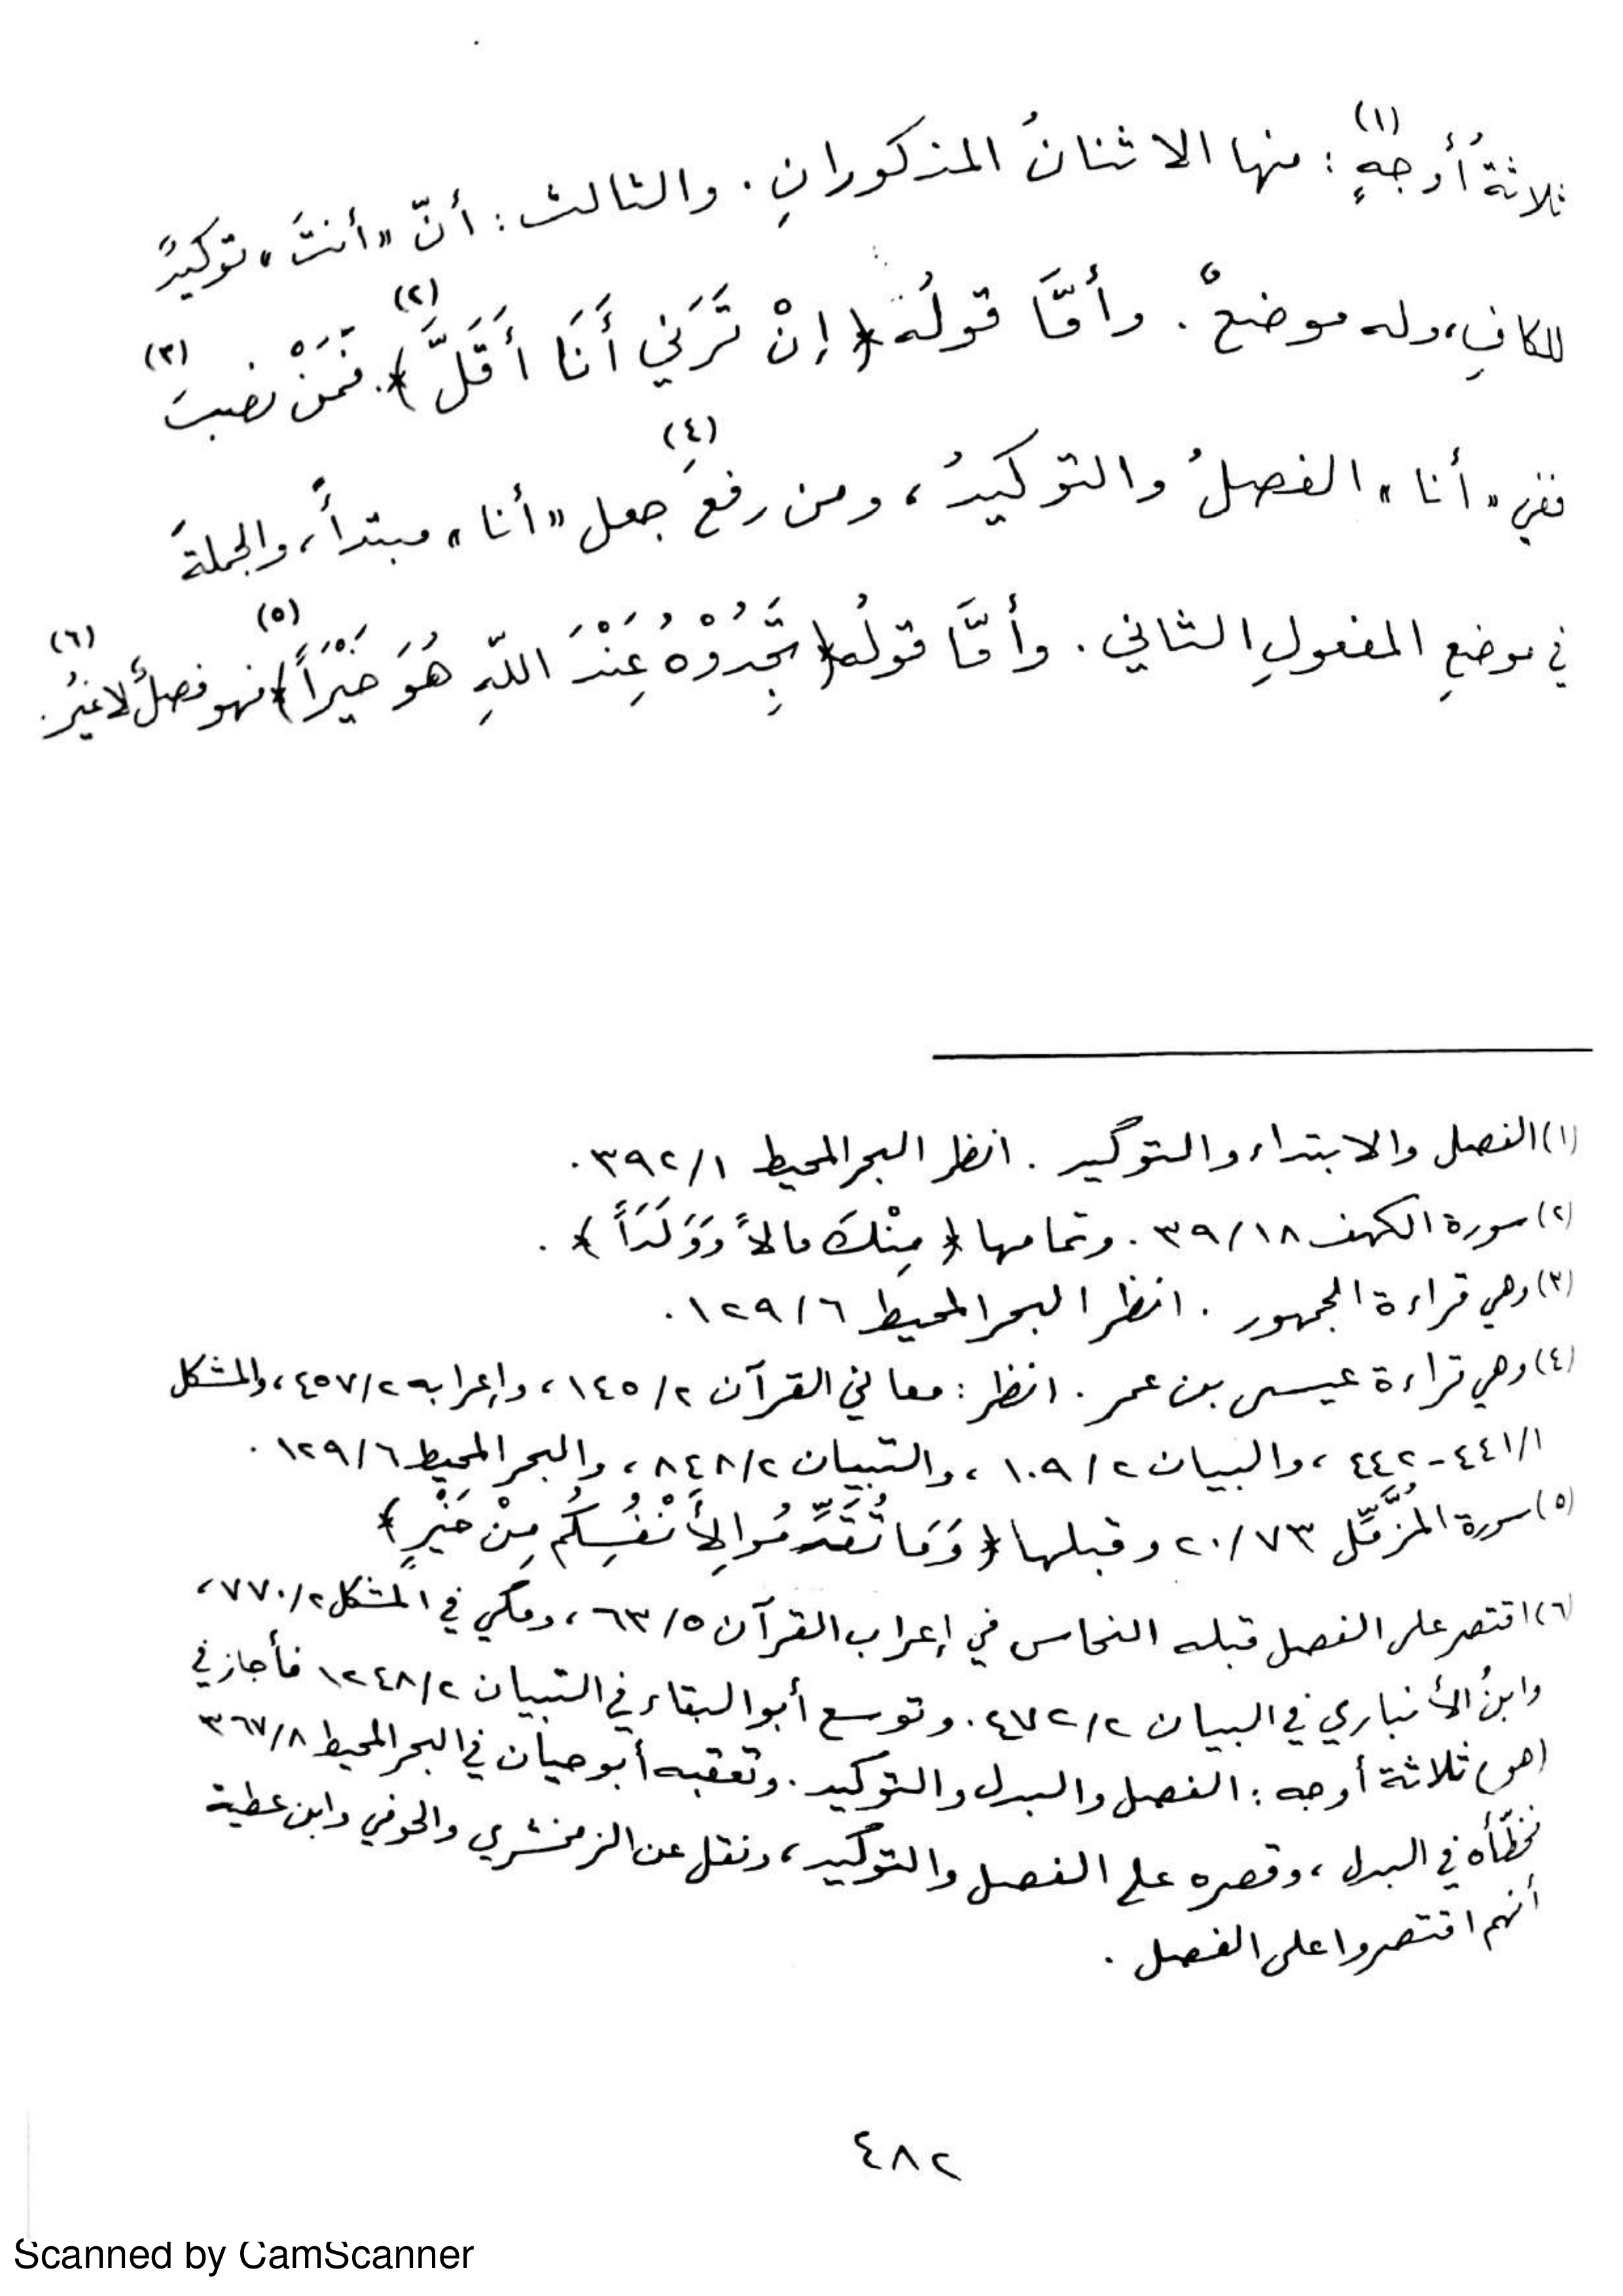 ثلاثةُ أوجهٍ(١) : منها الاثنانُ المذكورانِ . والثالث : أنّ «أنتَ» توكيدٌ
للكافِ، وله موضعٌ . وأمَّا قولُه ﴿ إنْ تَرَني أَنَا أَقَلَّ ﴾(٢). فَمَنْ نصبَ(٣)
ففي «أنا» الفصلُ والتوكيدُ ، ومن رفعَ(٤) جعل «أنا» مبتدأً، والجملةَ
في موضعِ المفعولِ الثاني . وأمَّا قولُه ﴿ تَجِدُوْهُ عِنْدَ اللّهِ هُوَ خَيْرَاً ﴾(٥) فهو فصلٌ لاغيرُ(٦).
(١) الفصل والابتداء والتوكيد . انظر البحر المحيط ٣٩٢/١ .
(٢) سورة الكهف ٣٩/١٨ . وتمامها ﴿ مِنْكَ مالاً وَوَلَدَاً ﴾ .
(٣) وهي قراءة الجمهور . انظر البحر المحيط ١٢٩/٦ .
(٤) وهي قراءة عيسى بن عمر . انظر : معاني القرآن ١٤٥/٢ ، وإعرابه ٤٥٧/٢ ، والمشكل
٤٤١/١ - ٤٤٢ ، والبيان ١٠٩/٢ ، والتبيان ٨٤٨/٢ ، والبحر المحيط ١٢٩/٦ .
(٥) سورة المُزَّمِّل ٢٠/٧٣ وقبلها ﴿ وَمَا تُقَدِّمُوا لِأَنْفُسِكُم مِنْ خَيْرٍ ﴾
(٦) اقتصر على الفصل قبله النحاس في إعراب القرآن ٦٣/٥ ، ومكي في المشكل ٧٧٠/٢ ،
وابنُ الأنباري في البيان ٤٧٢/٢ . وتوسع أبو البقاء في التبيان ١٢٤٨/٢ فأجاز في
(هو) ثلاثة أوجه : الفصل والبدل والتوكيد . وتعقبه أبو حيان في البحر المحيط ٣٦٧/٨
فخطّأه في البدل ، وقصره على الفصل والتوكيد ، ونقل عن الزمخشري والحوفي وابن عطية
أنهم اقتصروا على الفصل .
٤٨٢
Scanned by CamScanner